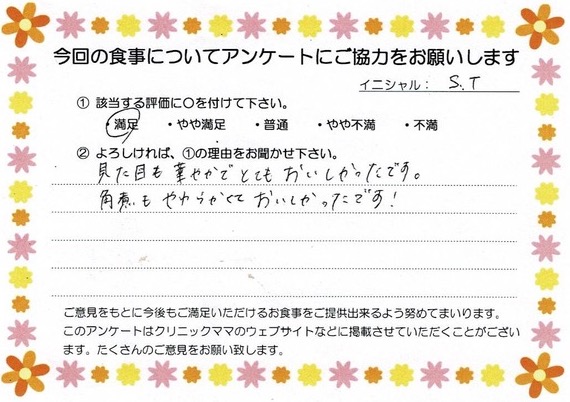 今回の食事についてアンケートにご協力をお願いします
イニシャル： S.T
① 該当する評価に〇を付けて下さい。
・満足 ・やや満足 ・普通 ・やや不満 ・不満
② よろしければ、①の理由をお聞かせ下さい。
見た目も華やかでとてもおいしかったです。
角煮もやわらかくておいしかったです！
ご意見をもとに今後もご満足いただけるお食事をご提供出来るよう努めてまいります。
このアンケートはクリニックママのウェブサイトなどに掲載させていただくことがござい
ます。たくさんのご意見をお願い致します。